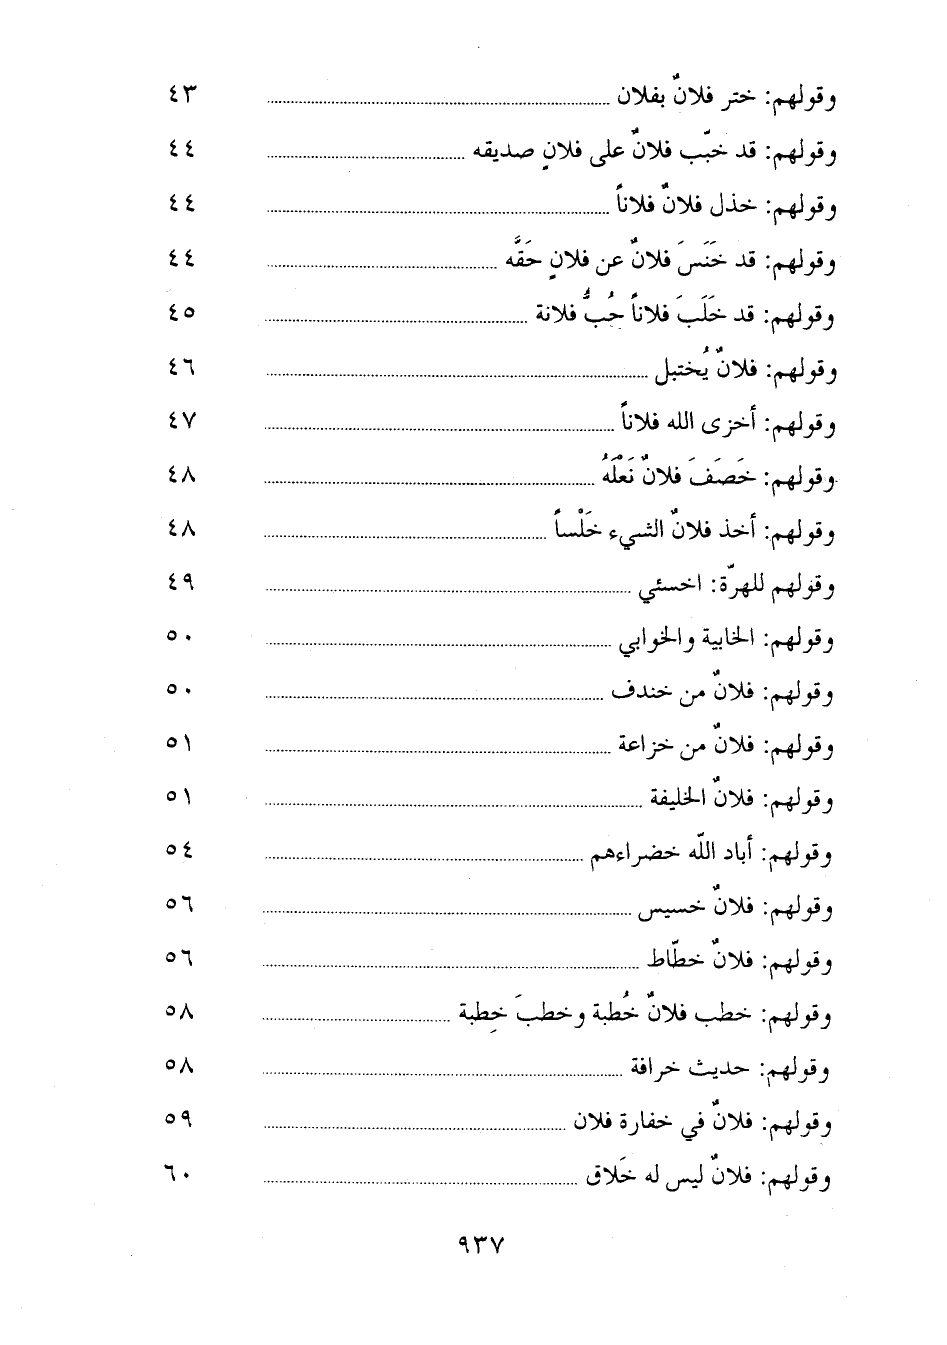 وقولهم: ختر فلانٌ بفلان ........ ٤٣
وقولهم: قد خبّب فلانٌ على فلانٍ صديقه ........ ٤٤
وقولهم: خذل فلانٌ فلاناً ........ ٤٤
وقولهم: قد خَنَسَ فلانٌ عن فلانٍ حَقَّه ........ ٤٤
وقولهم: قد خَلَبَ فلاناً حُبُّ فلانة ........ ٤٥
وقولهم: فلانٌ يُختبل ........ ٤٦
وقولهم: أخزى الله فلاناً ........ ٤٧
وقولهم: خَصَفَ فلانٌ نَعْلَهُ ........ ٤٨
وقولهم: أخذ فلانٌ الشيء خَلْساً ........ ٤٨
وقولهم للهرّة: اخسئي ........ ٤٩
وقولهم: الخابية والخوابي ........ ٥٠
وقولهم: فلانٌ من خندف ........ ٥٠
وقولهم: فلانٌ من خزاعة ........ ٥١
وقولهم: فلانٌ الخليفة ........ ٥١
وقولهم: أباد اللّه خضراءهم ........ ٥٤
وقولهم: فلانٌ خسيس ........ ٥٦
وقولهم: فلانٌ خطّاط ........ ٥٦
وقولهم: خطب فلانٌ خُطبة وخطبَ خِطبة ........ ٥٨
وقولهم: حديث خرافة ........ ٥٨
وقولهم: فلانٌ في خفارة فلان ........ ٥٩
وقولهم: فلانٌ ليس له خَلاق ........ ٦٠
٩٣٧